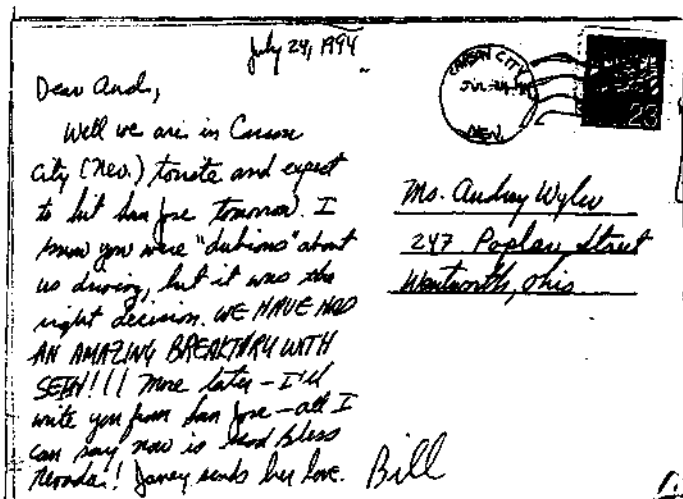 July 24, 1994
Dear Aud,
Well we are in Carson
City (Nev.) tonite and expect
to hit San Jose tomorrow. I
know you were "dubious" about
us driving, but it was the
right decision. WE HAVE HAD
AN AMAZING BREAKTHRU WITH
SETH!!! More later - I'll
write you from San Jose - all I
can say now is God bless
Nevada! Janey sends her love. Bill
CARSON CITY
JUL
NEV.
23
Ms. Audrey Wyler
247 Poplar Street
Wentworth, Ohio